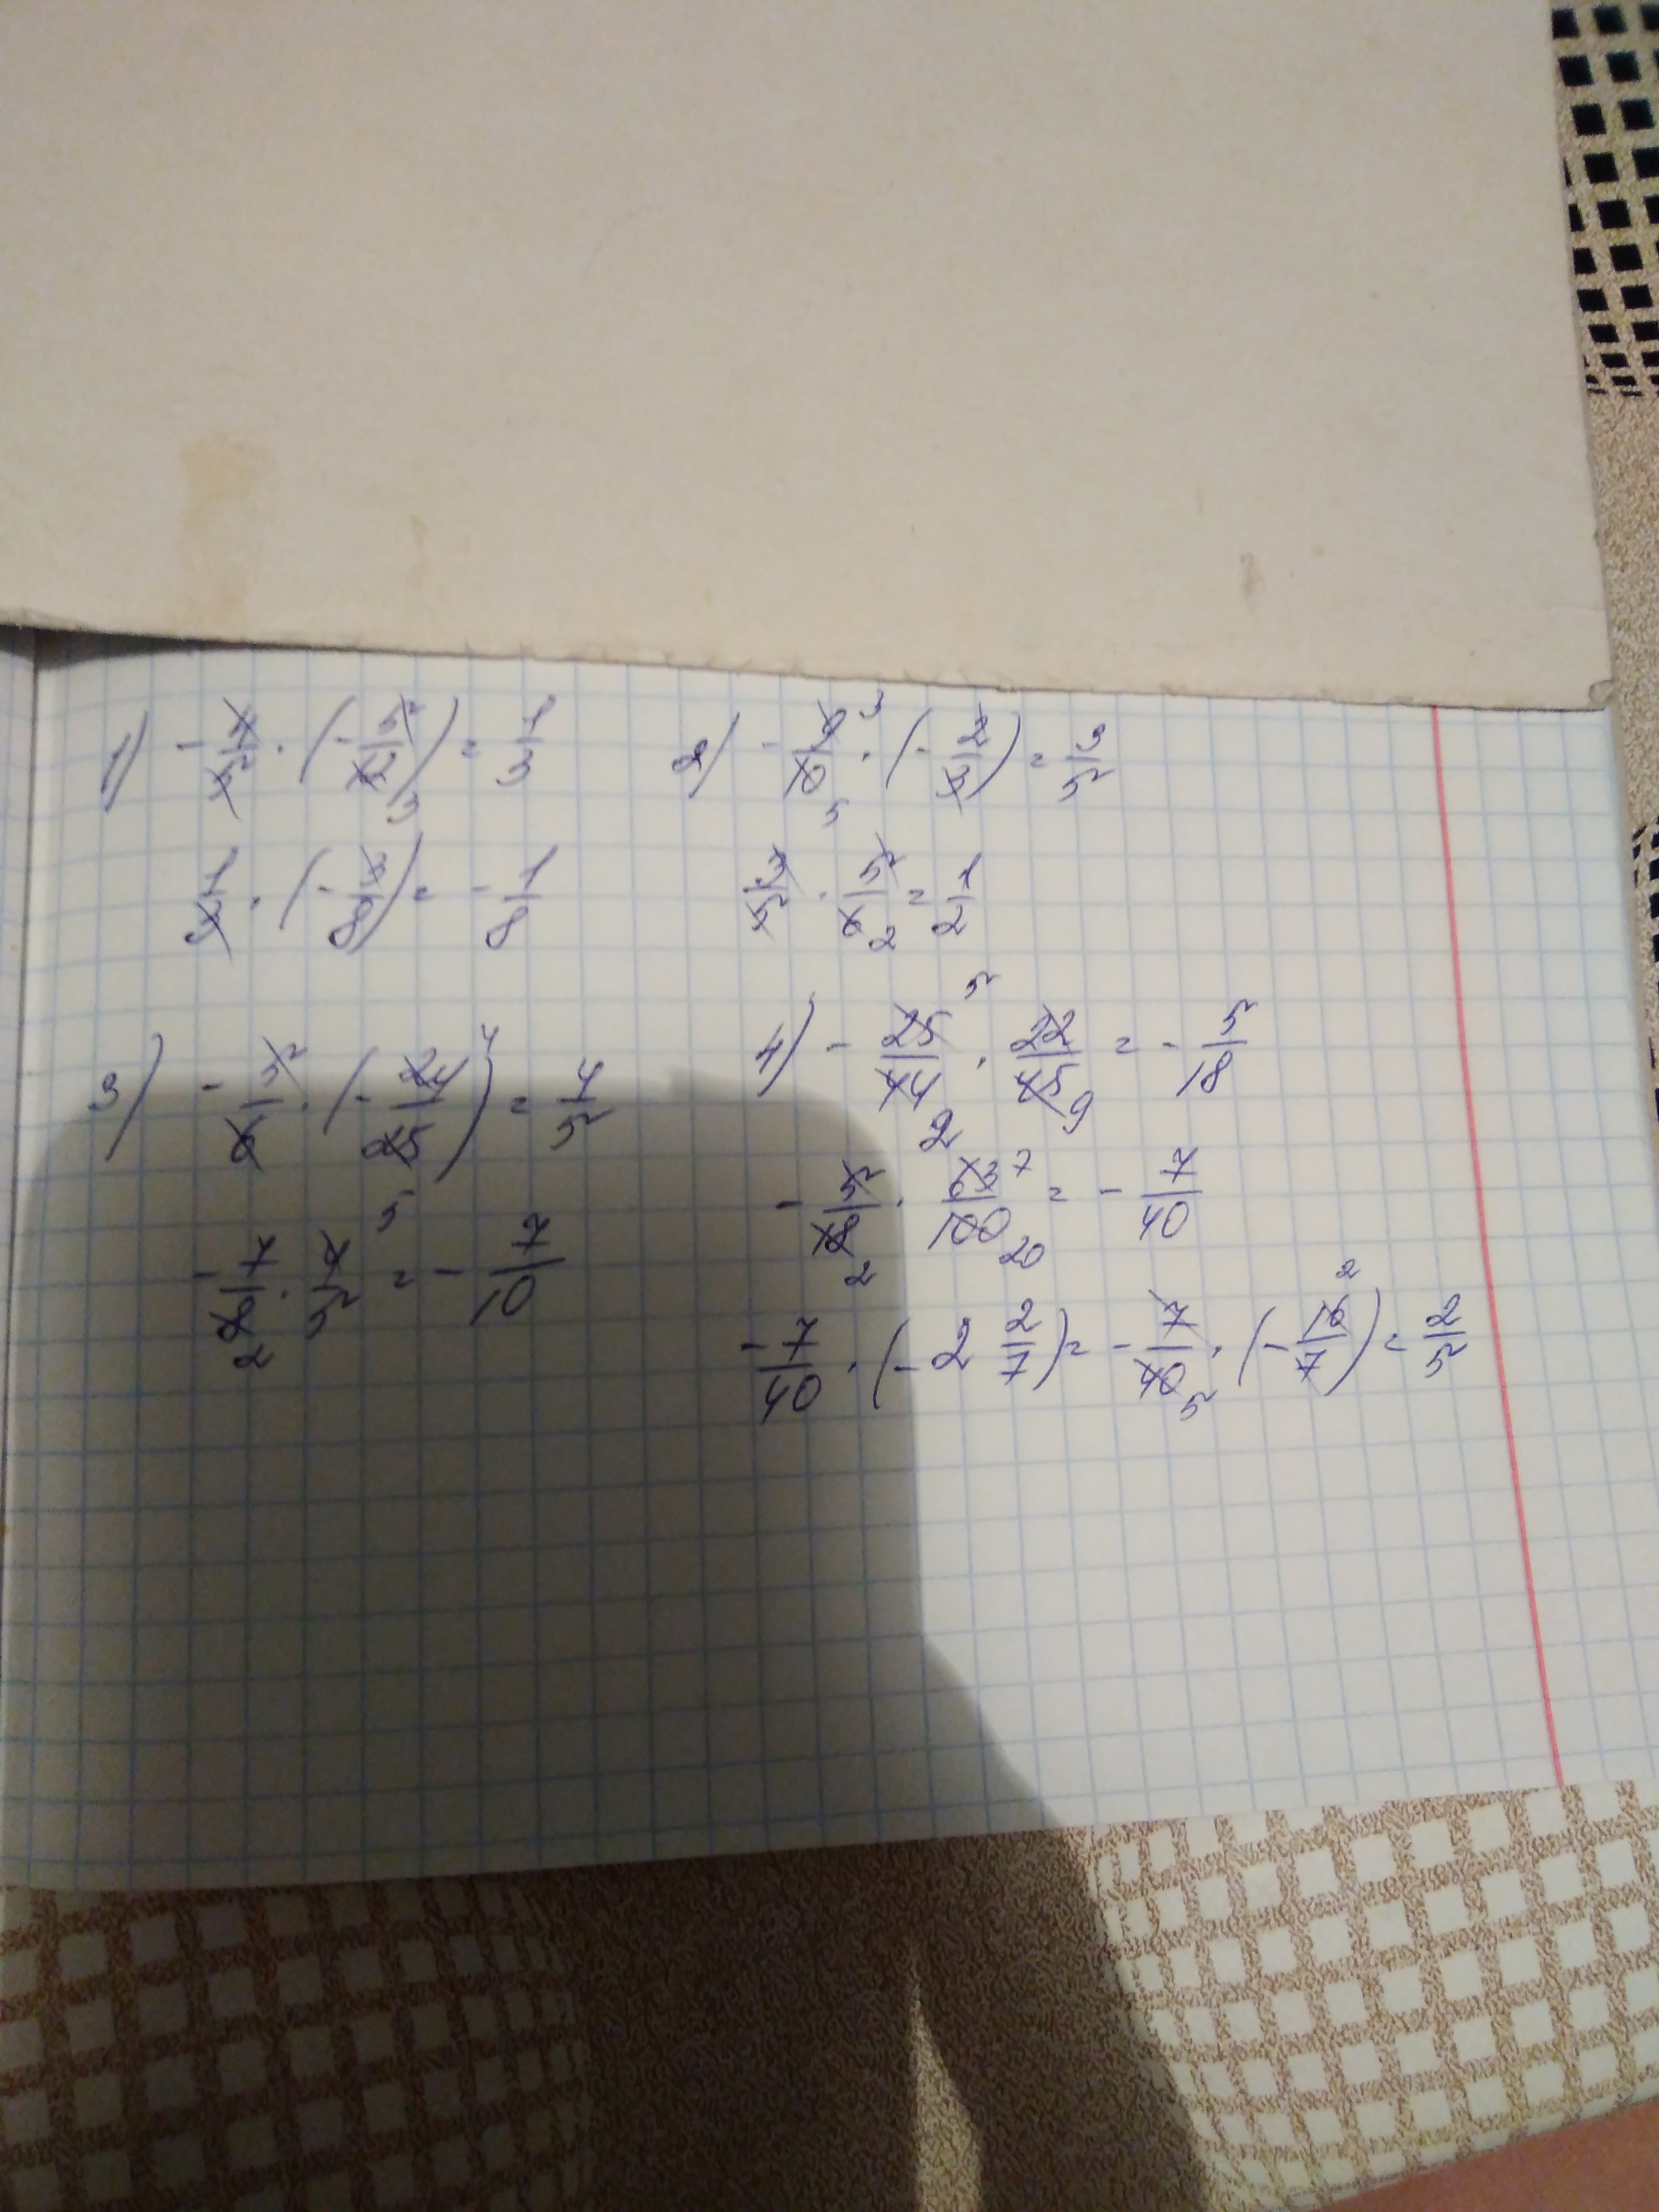 1) - 4/5 · (- 5/12 3) = 1/3
1/3 · (- 3/8) = - 1/8
2) - 9 3/10 5 · (- 2/3) = 3/5
3/5 · 5/6 2 = 1/2
3) - 5/6 · (- 24 4/25 5) = 4/5
- 7/8 2 · 4/5 = - 7/10
4) - 25 5/44 2 · 22/45 9 = - 5/18
- 5/18 2 · 63 7/100 20 = - 7/40
- 7/40 · (- 2 2/7) = - 7/40 5 · (- 16 2/7) = 2/5